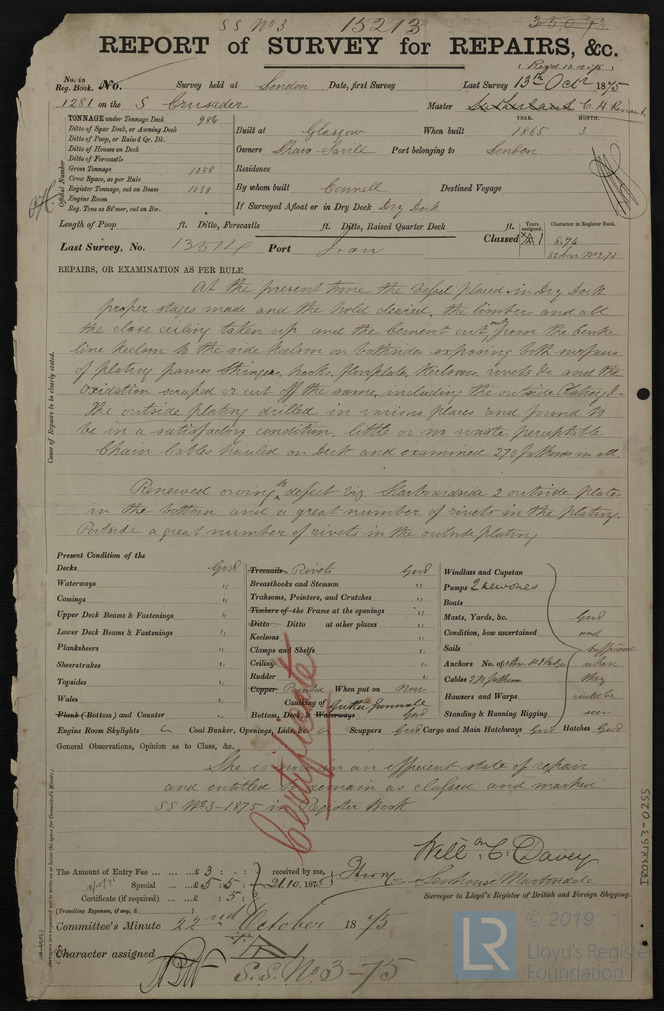 SS No 3 15213 35073
REPORT of SURVEY for REPAIRS, &c.
(Recd 12.10.75)
No. in Reg. Book. No. Survey held at London Date, first Survey Last Survey 13th Octr 1875
1281 on the S Crusader Master C. A. Renaut
TONNAGE under Tonnage Deck 986
Ditto of Spar Deck, or Awning Deck
Ditto of Poop, or Raised Qr. Dk.
Ditto of Houses on Deck
Ditto of Forecastle
Gross Tonnage 1058
Crew Space, as per Rule
Register Tonnage, cut on Beam 1058
Engine Room
Reg. Tons as St'mer, cut on Bm.
Official Number
YEAR. MONTH.
Built at Glasgow When built 1865 3
Owners Shaw Savill Port belonging to London
Residence
By whom built Connell Destined Voyage
If Surveyed Afloat or in Dry Dock Dry Dock
Length of Poop ft. Ditto, Forecastle ft. Ditto, Raised Quarter Deck ft.
Years assigned. Character in Register Book.
Last Survey, No. 13514 Port Iron Classed A1 8.74
SS Lon No 2-73
REPAIRS, OR EXAMINATION AS PER RULE
Cause of Repairs to be clearly stated.
At the present time the vessel placed in Dry Dock
proper stages made and the hold cleared, the limbers and all
the close ceiling taken up and the cement cut only from the
line Keelson to the side Keelson on both sides exposing both surfaces
of plating frames Stringers, hooks, floorplate, Keelsons, rivets &c and the
Oxidation scraped or cut off the same, including the outside Plating &c
The outside plating drilled in various places and found to
be in a satisfactory condition, little or no waste perceptable
Chain Cables hauled on Deck and examined 270 fathoms in all.
Renewed owing to defect Viz Starboardside 2 outside plate
in the bottom and a great number of rivets in the plating.
Portside a great number of rivets in the outside plating
Present Condition of the
Decks Good
Waterways "
Comings "
Upper Deck Beams & Fastenings "
Lower Deck Beams & Fastenings "
Planksheers "
Sheerstrakes "
Topsides "
Wales "
Plank (Bottom) and Counter "
Treenails Rivets Good
Breasthooks and Stemson "
Transoms, Pointers, and Crutches "
Timbers of the Frame at the openings "
Ditto Ditto at other places "
Keelsons "
Clamps and Shelfs "
Ceiling "
Rudder "
Copper Painted When put on Now
Caulking of Gutter Gunwale
Bottom, Deck, & Waterways Good
Windlass and Capstan
Pumps 2 new ones
Boats
Masts, Yards, &c.
Condition, how ascertained
Sails
Anchors No. of
Cables 270 fathom
Hawsers and Warps
Standing & Running Rigging
Good and sufficient where they could be seen
Engine Room Skylights Coal Bunker, Openings, Lids, &c. Scuppers Good Cargo and Main Hatchways Good Hatches Good
General Observations, Opinion as to Class, &c.
She is now in an efficient state of repair
and entitled to remain as classed and marked
SS No 3-1875 in Register Book
Certificate
Will am C. Davey
The Amount of Entry Fee £ 3 : :
Special £ 5 : 5 :
Certificate (if required) £ : 5 :
(Travelling Expenses, if any, £ )
received by me, 21.10.1875
Surveyor to Lloyd's Register of British and Foreign Shipping.
Committee's Minute 22nd October 1875
Character assigned A1
S.S. No 3-75
IRON463-0255
LR © 2019
Lloyd's Register
Foundation